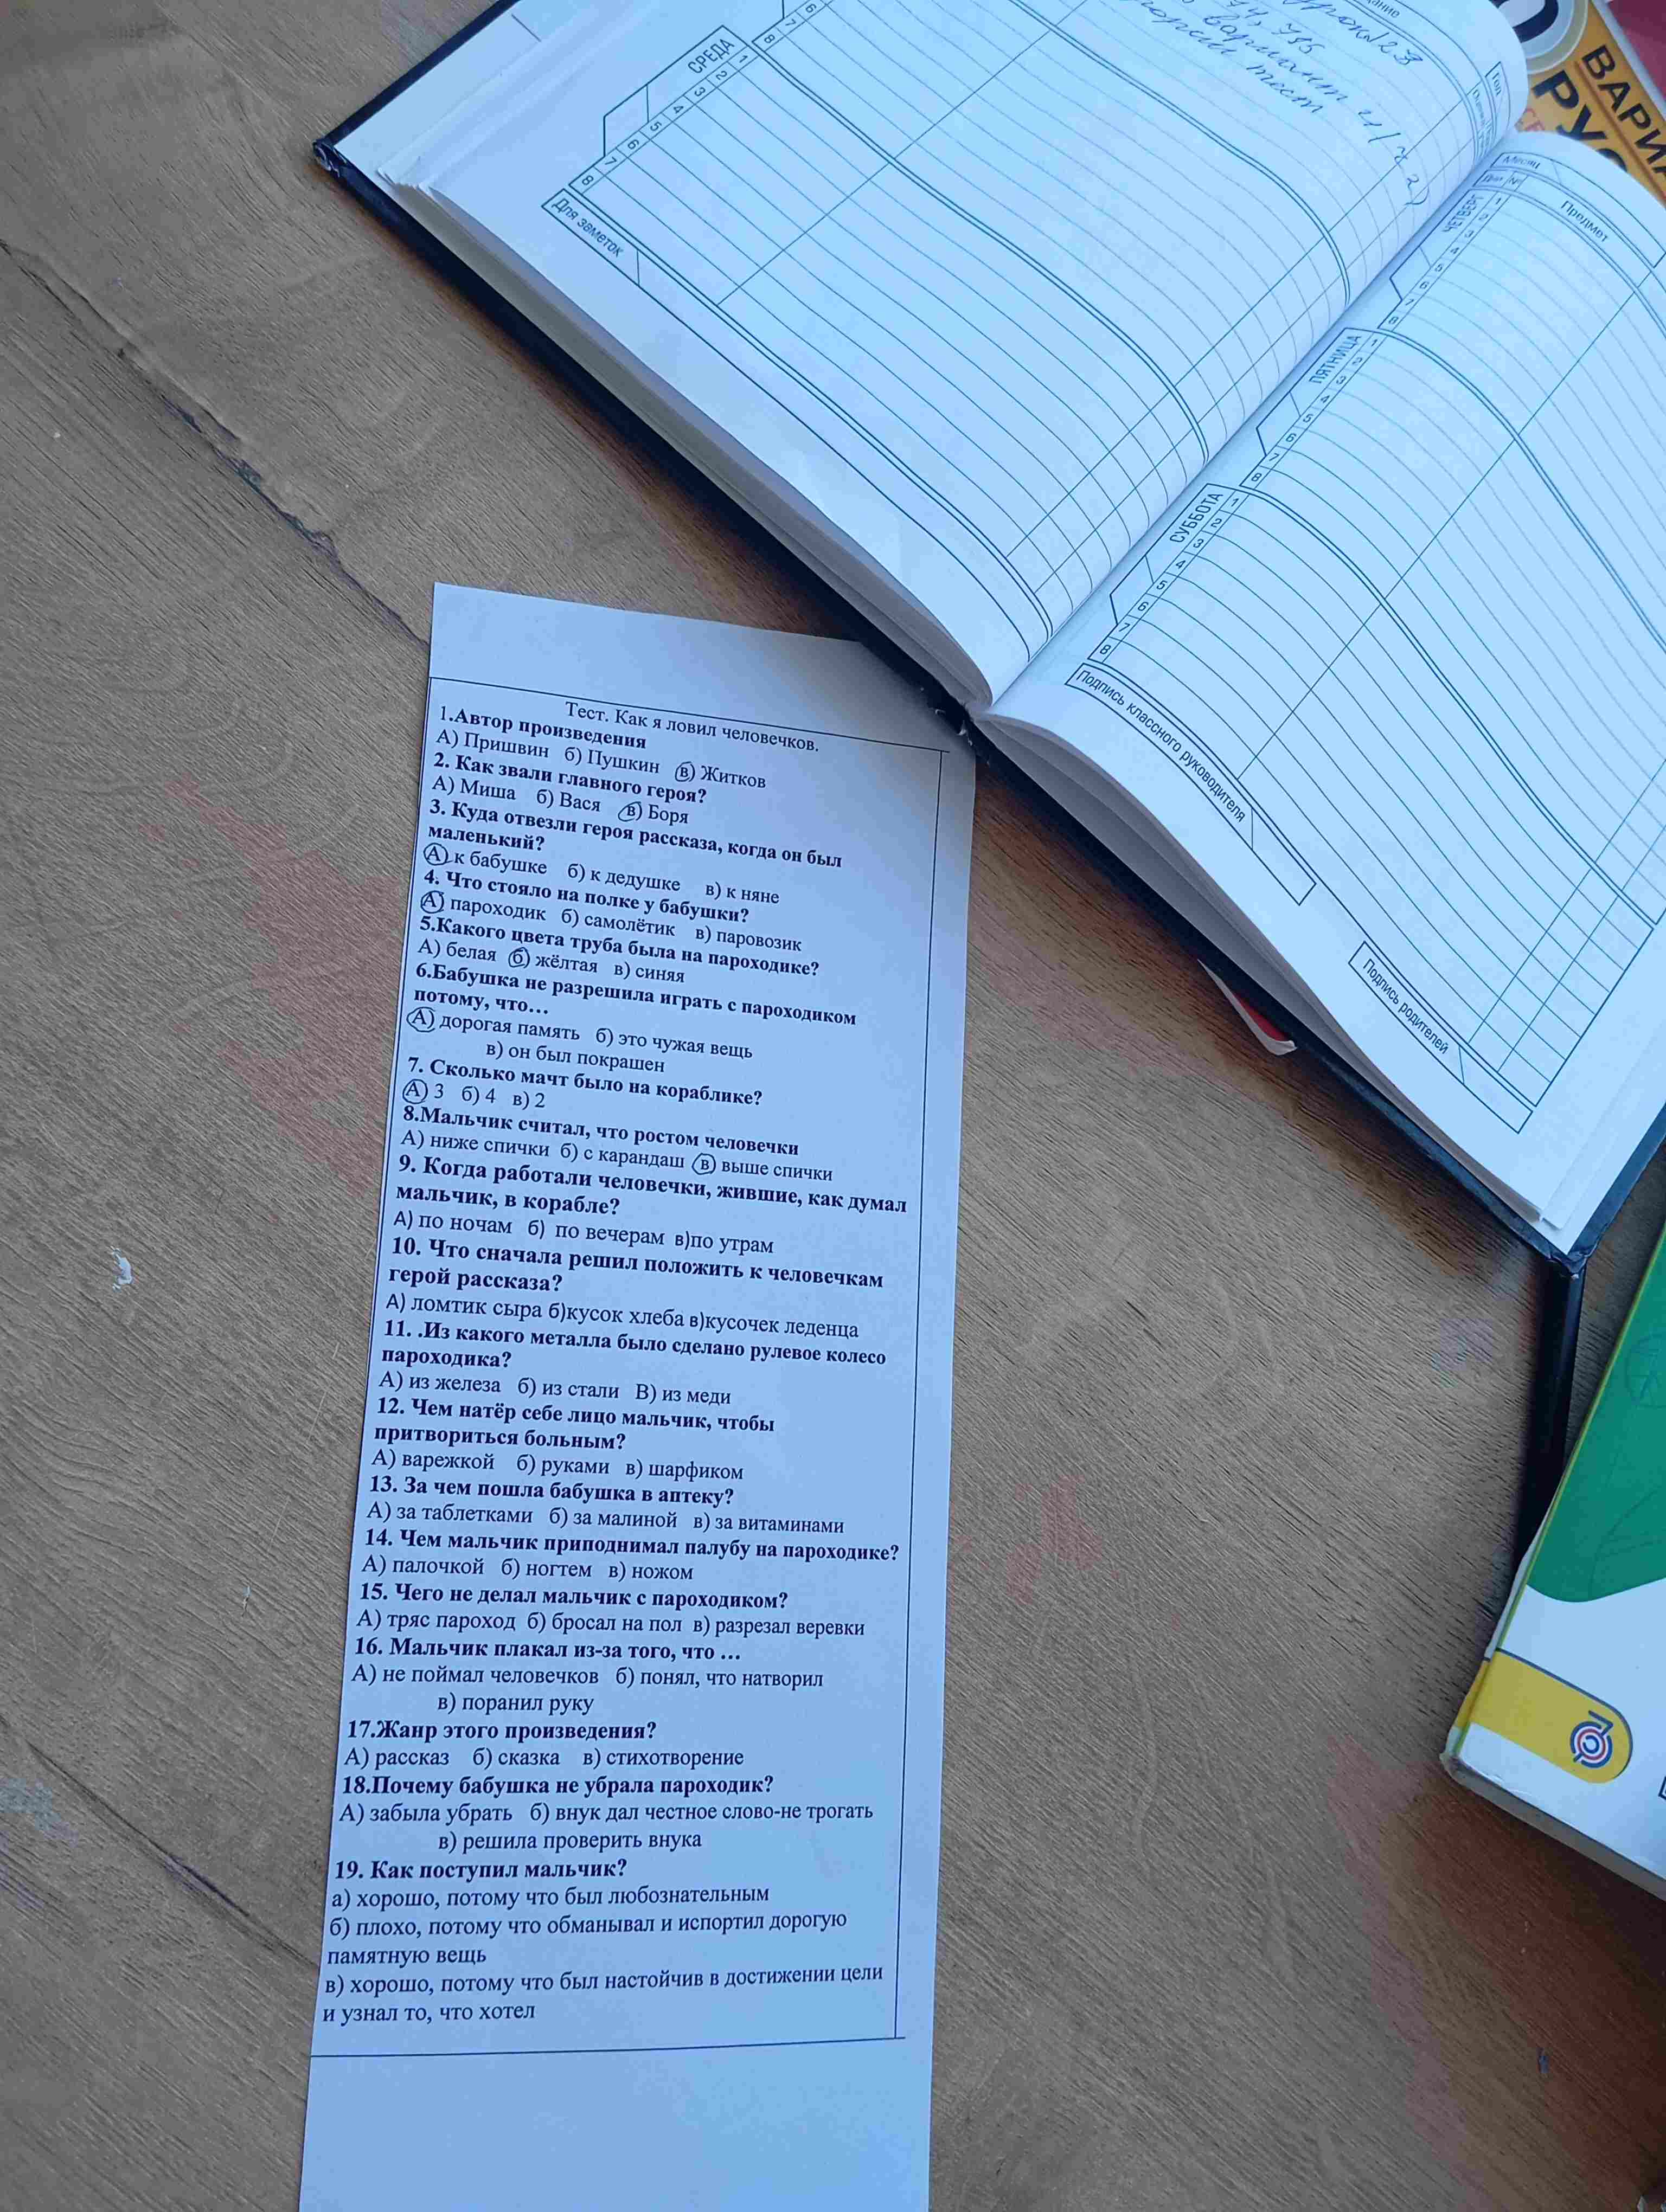 СРЕДА
1
2
3
4
5
6
7
8
Для заметок
6
7
8
вариант
тест
Месяц
Дни
№
Предмет
ЧЕТВЕРГ
1
2
3
4
5
6
7
8
ПЯТНИЦА
1
2
3
4
5
6
7
8
СУББОТА
1
2
3
4
5
6
7
8
Подпись классного руководителя
Подпись родителей
Тест. Как я ловил человечков.
1.Автор произведения
А) Пришвин б) Пушкин в) Житков
2. Как звали главного героя?
А) Миша б) Вася в) Боря
3. Куда отвезли героя рассказа, когда он был
маленький?
А) к бабушке б) к дедушке в) к няне
4. Что стояло на полке у бабушки?
А) пароходик б) самолётик в) паровозик
5.Какого цвета труба была на пароходике?
А) белая б) жёлтая в) синяя
6.Бабушка не разрешила играть с пароходиком
потому, что…
А) дорогая память б) это чужая вещь
в) он был покрашен
7. Сколько мачт было на кораблике?
А) 3 б) 4 в) 2
8.Мальчик считал, что ростом человечки
А) ниже спички б) с карандаш в) выше спички
9. Когда работали человечки, жившие, как думал
мальчик, в корабле?
А) по ночам б) по вечерам в)по утрам
10. Что сначала решил положить к человечкам
герой рассказа?
А) ломтик сыра б)кусок хлеба в)кусочек леденца
11. .Из какого металла было сделано рулевое колесо
пароходика?
А) из железа б) из стали В) из меди
12. Чем натёр себе лицо мальчик, чтобы
притвориться больным?
А) варежкой б) руками в) шарфиком
13. За чем пошла бабушка в аптеку?
А) за таблетками б) за малиной в) за витаминами
14. Чем мальчик приподнимал палубу на пароходике?
А) палочкой б) ногтем в) ножом
15. Чего не делал мальчик с пароходиком?
А) тряс пароход б) бросал на пол в) разрезал веревки
16. Мальчик плакал из-за того, что …
А) не поймал человечков б) понял, что натворил
в) поранил руку
17.Жанр этого произведения?
А) рассказ б) сказка в) стихотворение
18.Почему бабушка не убрала пароходик?
А) забыла убрать б) внук дал честное слово-не трогать
в) решила проверить внука
19. Как поступил мальчик?
а) хорошо, потому что был любознательным
б) плохо, потому что обманывал и испортил дорогую
памятную вещь
в) хорошо, потому что был настойчив в достижении цели
и узнал то, что хотел